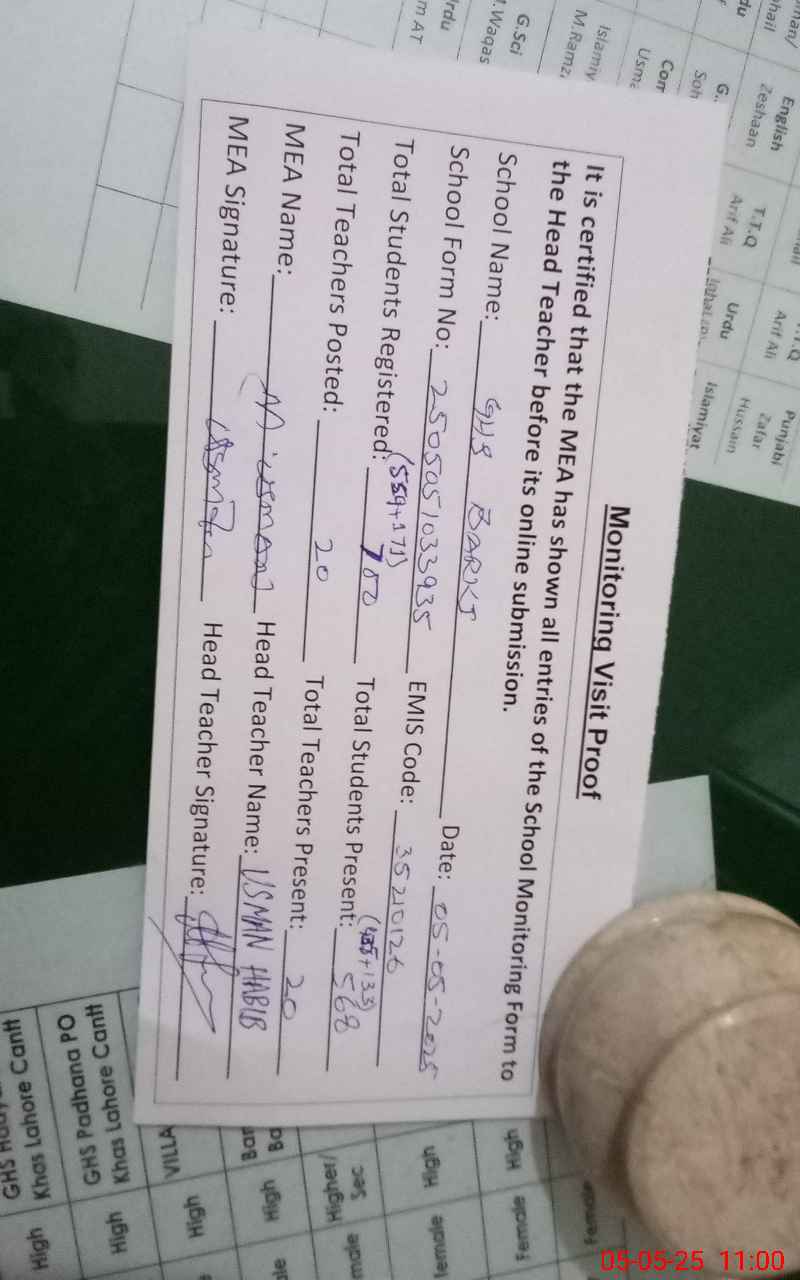 Monitoring Visit Proof
It is certified that the MEA has shown all entries of the School Monitoring Form to
the Head Teacher before its online submission.
School Name: GHS BARKI Date: 05-05-2025
School Form No: 2505051033935 EMIS Code: 35210126
Total Students Registered: (559+171) 700 Total Students Present: (435+133) 568
Total Teachers Posted: 20 Total Teachers Present: 20
MEA Name: Head Teacher Name: USMAN HABIB
MEA Signature: Head Teacher Signature:
English
Zeshaan
T.T.Q
Arif Ali
Urdu
Islamiyat
Arif Ali
Hussain
Punjabi
Zafar
G.Sci
M.Ramz
GHS Padhana PO
Khas Lahore Cantt
Khas Lahore Cantt
High
High
High
High
Higher/
Sec
High
High
Female
05-05-25 11:00